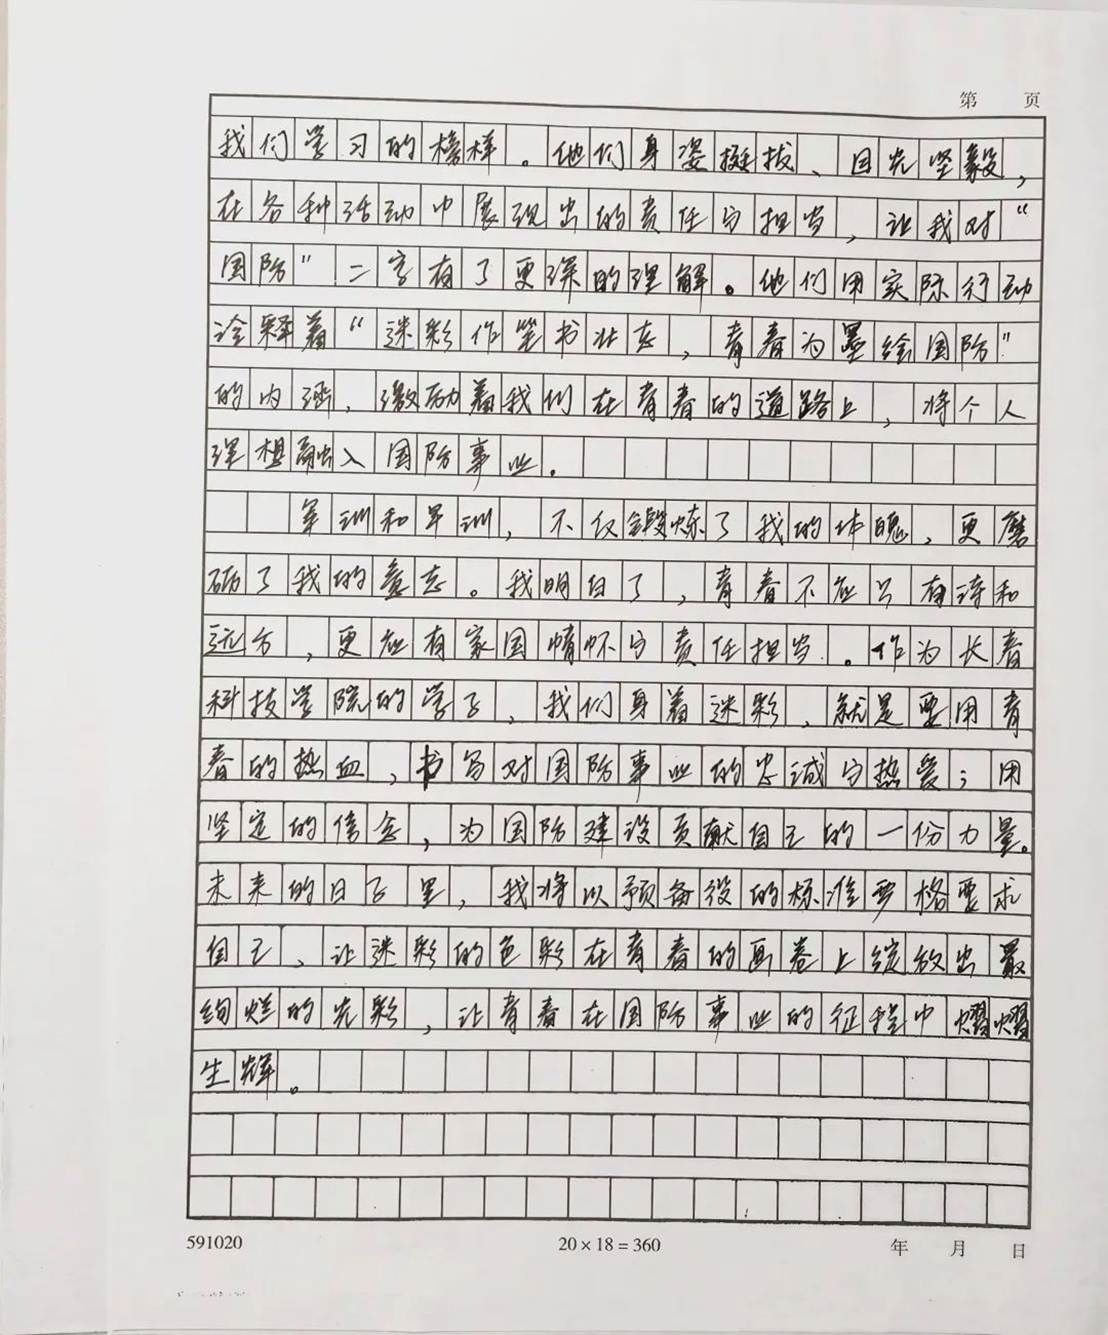 第 页
我们学习的榜样。他们身姿挺拔、目光坚毅,
在各种活动中展现出的责任与担当,让我对“
国防”二字有了更深的理解。他们用实际行动
诠释着“迷彩作笔书壮志,青春为墨绘国防”
的内涵,激励着我们在青春的道路上,将个人
理想融入国防事业。
军训和军训,不仅锻炼了我的体魄,更磨
砺了我的意志。我明白了,青春不应只有诗和
远方,更应有家国情怀与责任担当。作为长春
科技学院的学子,我们身着迷彩,就是要用青
春的热血,书写对国防事业的忠诚与热爱;用
坚定的信念,为国防建设贡献自己的一份力量。
未来的日子里,我将以预备役的标准严格要求
自己,让迷彩的色彩在青春的画卷上绽放出最
绚烂的光彩,让青春在国防事业的征程中熠熠
生辉。
591020 20×18=360 年 月 日